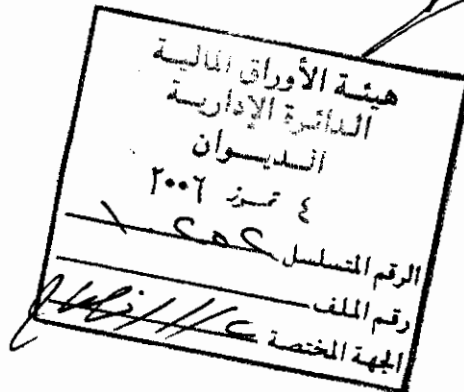 هيئة الأوراق المالية
الدائرة الإدارية
الديوان
٤ تمـوز ٢٠٠٦
الرقم المتسلسل
رقم الملف
الجهة المختصة